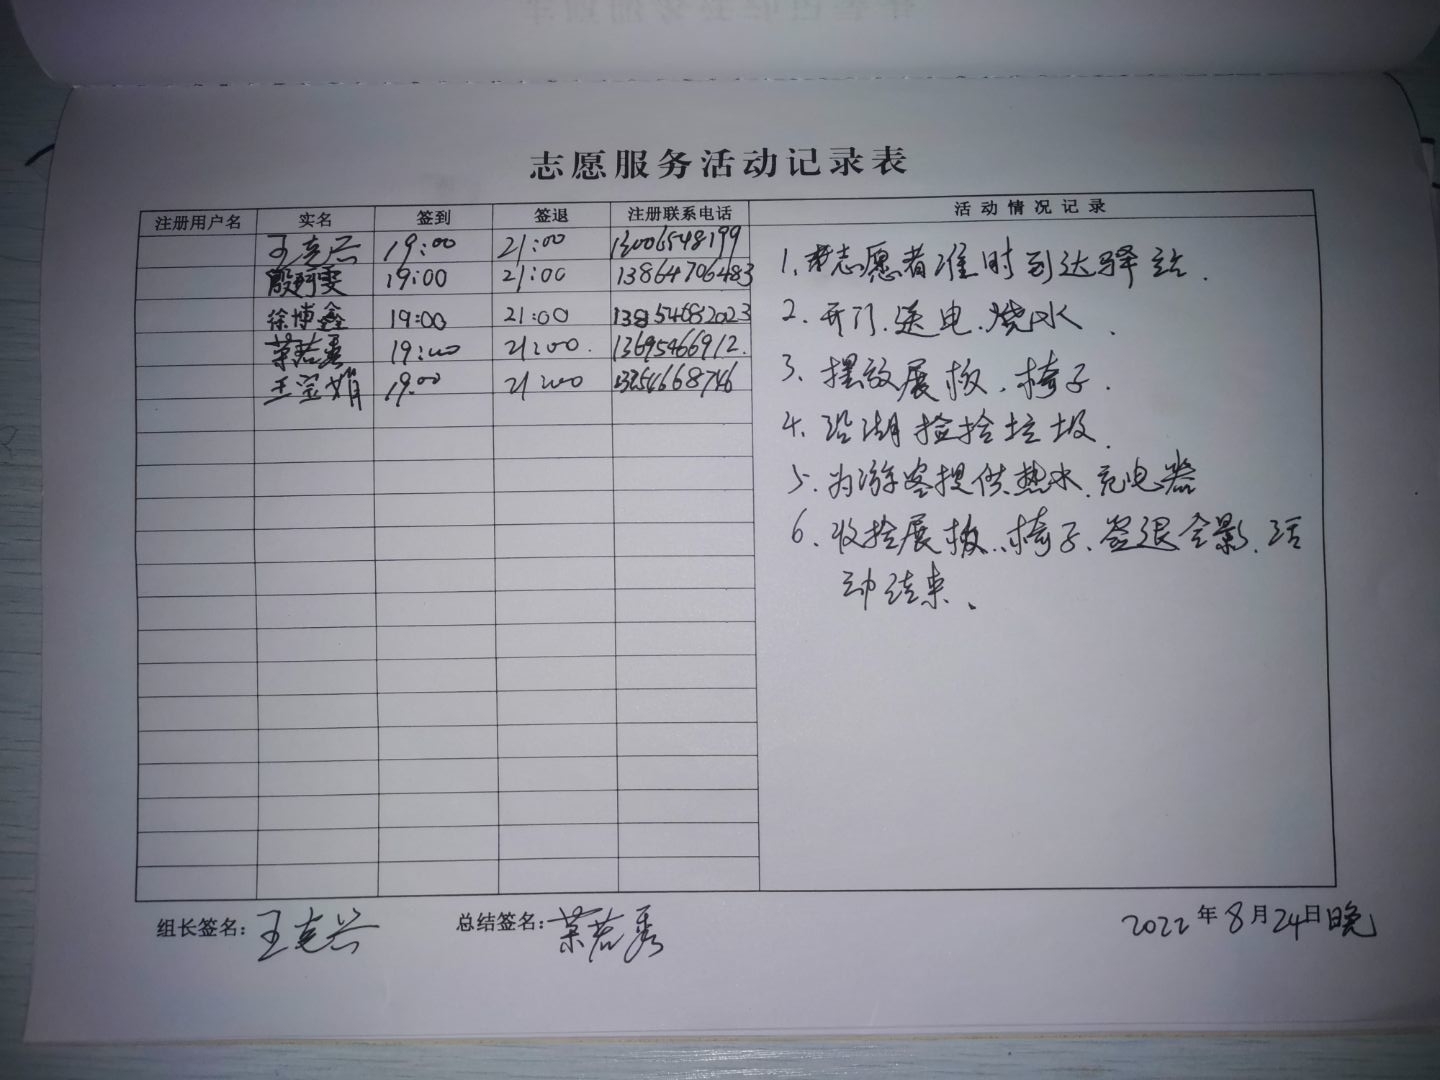 志愿服务活动记录表
注册用户名 实名 签到 签退 注册联系电话 活动情况记录
王克兴 19:00 21:00 13006548199
殷珂雯 19:00 21:00 13864706483
徐博鑫 19:00 21:00 13854682023
荣若秀 19:00 21:00. 13695466912.
王宝娟 19:00 21:00 13254668746
1、志愿者准时到达驿站.
2、开门、送电、烧水.
3、摆放展板、椅子.
4、沿湖捡拾垃圾.
5、为游客提供热水、充电器
6、收拾展板、椅子、签退合影、活
动结束、
组长签名: 王克兴 总结签名: 荣若秀 2022年8月24日晚